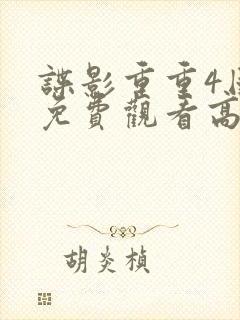 諜影重重4
免費觀看高
胡炎楨